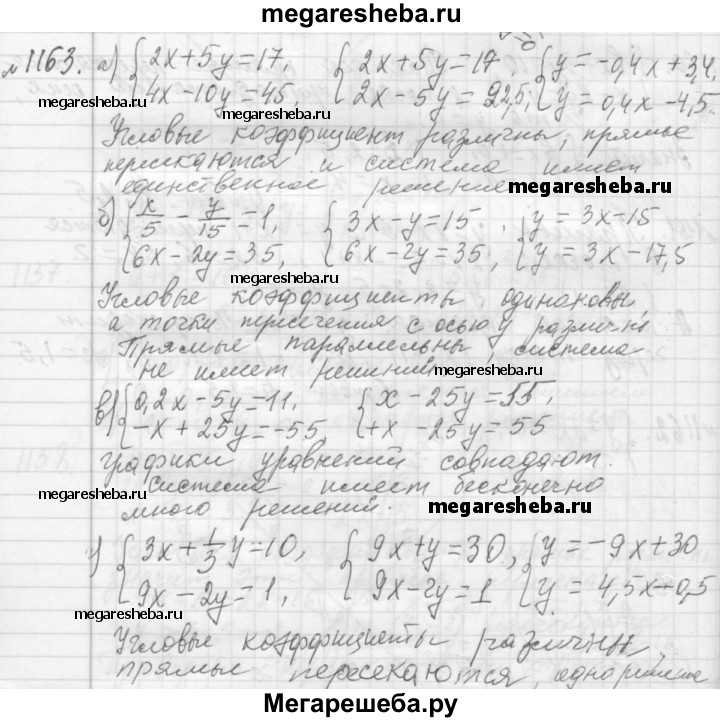 megaresheba.ru
№1163. а) {2x+5y=17, {2x+5y=17, {y=-0,4x+3,4,
{4x-10y=45, {2x-5y=22,5; {y=0,4x-4,5.
megaresheba.ru megaresheba.ru
Угловые коэффициент различны, прямые
пересекаются и система имеет
единственное решение
megaresheba.ru
б) {x/5 - y/15 = 1, {3x-y=15, {y=3x-15
{6x-2y=35, {6x-2y=35, {y=3x-17,5
megaresheba.ru
Угловые коэффициенты одинаковы
а точки пересечения с осью у различны
Прямые параллельны, система
не имеет решений
megaresheba.ru
в) {0,2x-5y=11, {x-25y=55,
{-x+25y=-55 {+x-25y=55
графики уравнений совпадают.
система имеет бесконечно
megaresheba.ru
много решений.
megaresheba.ru
г) {3x+1/3y=10, {9x+y=30, {y=-9x+30
{9x-2y=1, {9x-2y=1 {y=4,5x+0,5
megaresheba.ru megaresheba.ru
Угловые коэффициенты различны,
прямые пересекаются, одно решение
Мегарешеба.ру